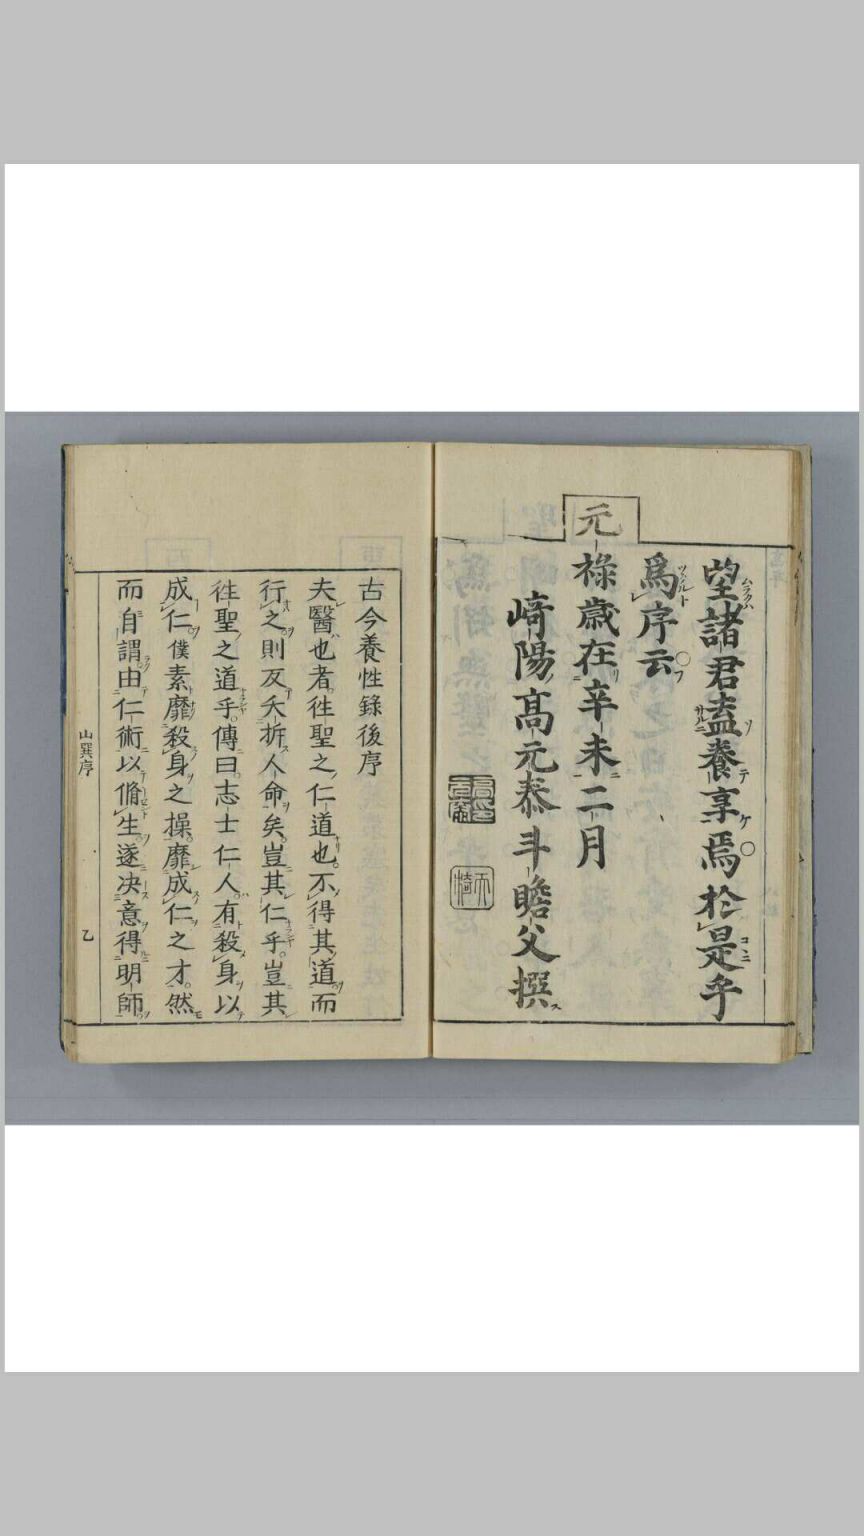 望諸君盍養享焉於是乎
爲序云
元祿歲在辛未二月
崎陽高元泰斗瞻父撰
古今養性錄後序
夫醫也者往聖之仁道也不得其道而
行之則反夭折人命矣豈其仁乎豈其
往聖之道乎傳曰志士仁人有殺身以
成仁僕素靡殺身之操靡成仁之才然
而自謂由仁術以脩生遂决意得明師
山巽序
乙